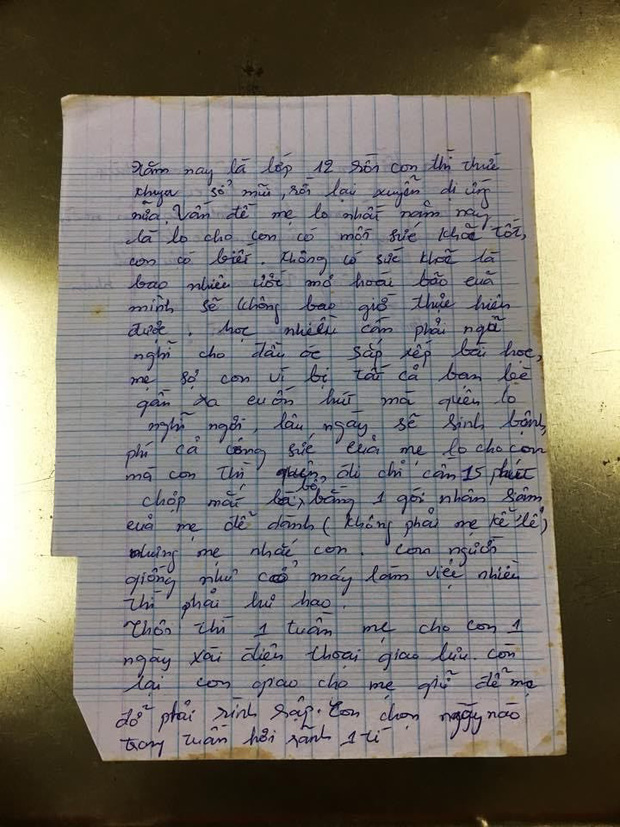 Năm nay là lớp 12 rồi con thì thức
khuya sổ mũi, rồi lại xuyễn dị ứng
nữa. Vấn đề mẹ lo nhất năm nay
là lo cho con có một sức khoẻ tốt,
con có biết. Không có sức khoẻ là
bao nhiêu ước mơ hoài bão của
mình sẽ không bao giờ thực hiện
được. học nhiều cần phải ngơi
nghĩ cho đầu óc sắp xếp bài học,
mẹ sợ con vì bị tất cả bạn bè
gần xa cuốn hút mà quên lo
nghĩ ngơi, lâu ngày sẽ sinh bệnh,
phí cả công sức của mẹ lo cho con
mà con thì quên, đi chỉ cần 15 phút
chớp mắt bỏ bằng 1 gói nhân sâm
của mẹ để dành (không phải mẹ kể lể)
nhưng mẹ nhắc con. Con người
giống như cổ máy làm việc nhiều
thì phải hư hao.
Thôi thì 1 tuần mẹ cho con 1
ngày xài điện thoại giao lưu. còn
lại con giao cho mẹ giữ để mẹ
đỡ phải rình rập. Con chọn ngày nào
trong tuần hơi rãnh 1 tí